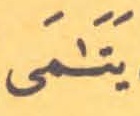 يَتَٰمَى